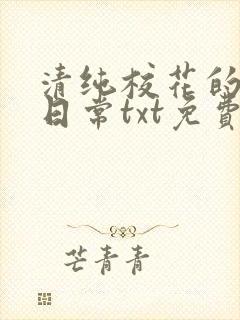 清纯校花的
日常txt免費
芒青青